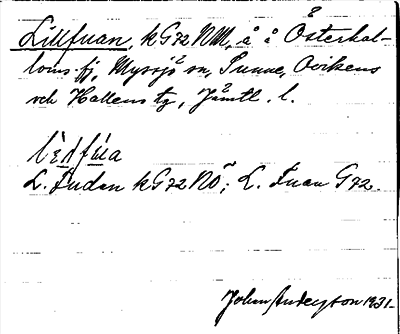 Lillfuan, kG72NM, å å Österkal-
loms fj, Myssjö sn, Sunne, Ovikens
och Hallens tg, Jämtl. l.
L. Fudan kG72NÖ; L. Fuan G72.
Johan Anderson 1931